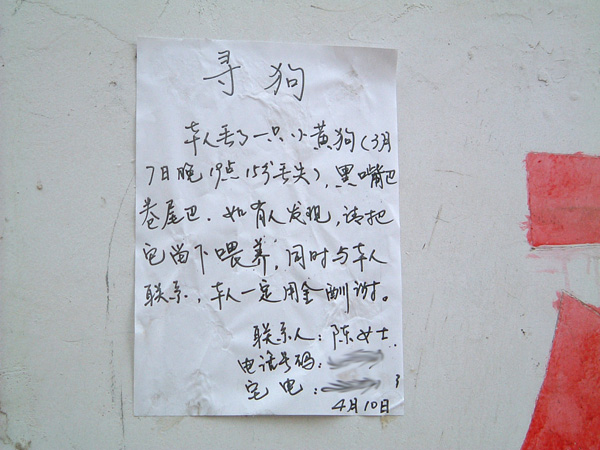 寻狗
本人丢了一只小黄狗(3月
7日晚19点15分丢失),黑嘴巴
卷尾巴.如有人发现,请把
它留下喂养,同时与本人
联系,本人一定用金酬谢。
联系人:陈女士
电话号码:
宅电:
4月10日